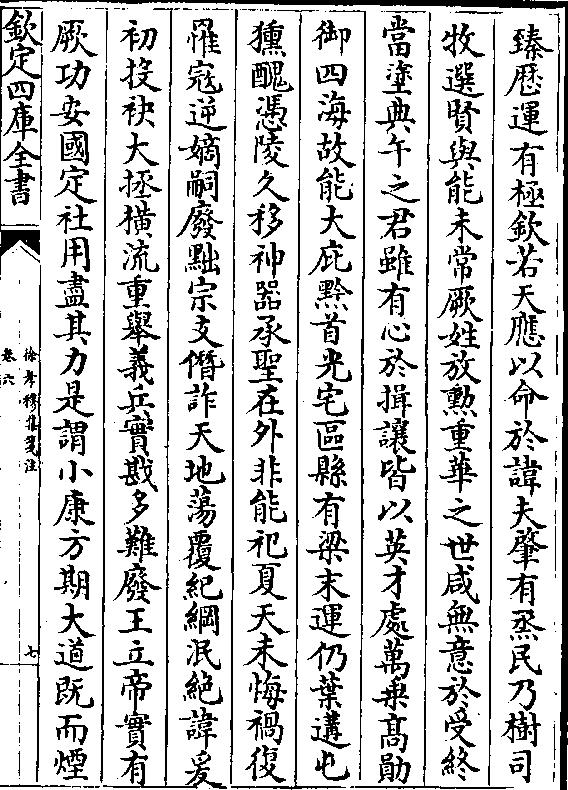 臻歴運有極欽若天應以命於諱夫肇有烝民乃樹司
牧選賢與能未常厥姓放勲重華之世咸無意於受終
當塗典午之君雖有心於揖讓皆以英才處萬乗髙勛
御四海故能大庇黔首光宅區縣有梁末運仍葉遘屯
獯醜憑陵久移神器承聖在外非能祀夏天未悔禍復
罹寇逆嫡嗣廢黜宗支僭詐天地蕩覆紀綱泯絶諱爰
初投袂大拯横流重舉義兵實戡多難廢王立帝實有
厥功安國定社用盡其力是謂小康方期大道既而煙
欽定四庫全書
徐孝穆集箋注
卷六
七